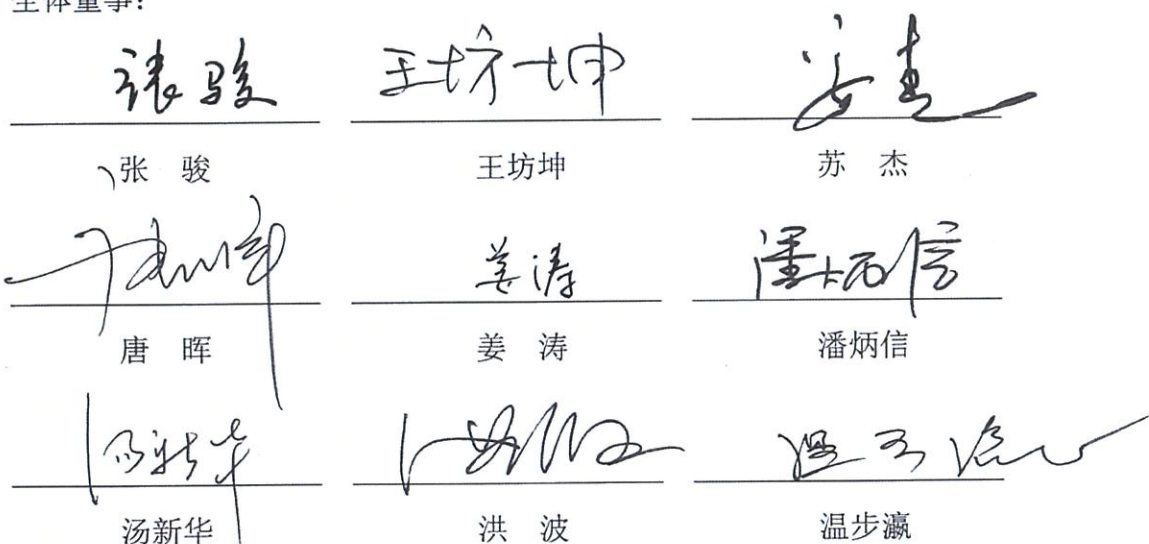 全体董事：
张骏 王坊坤 苏杰
张 骏 王坊坤 苏 杰
唐晖 姜涛 潘炳信
唐 晖 姜 涛 潘炳信
汤新华 洪波 温步瀛
汤新华 洪 波 温步瀛